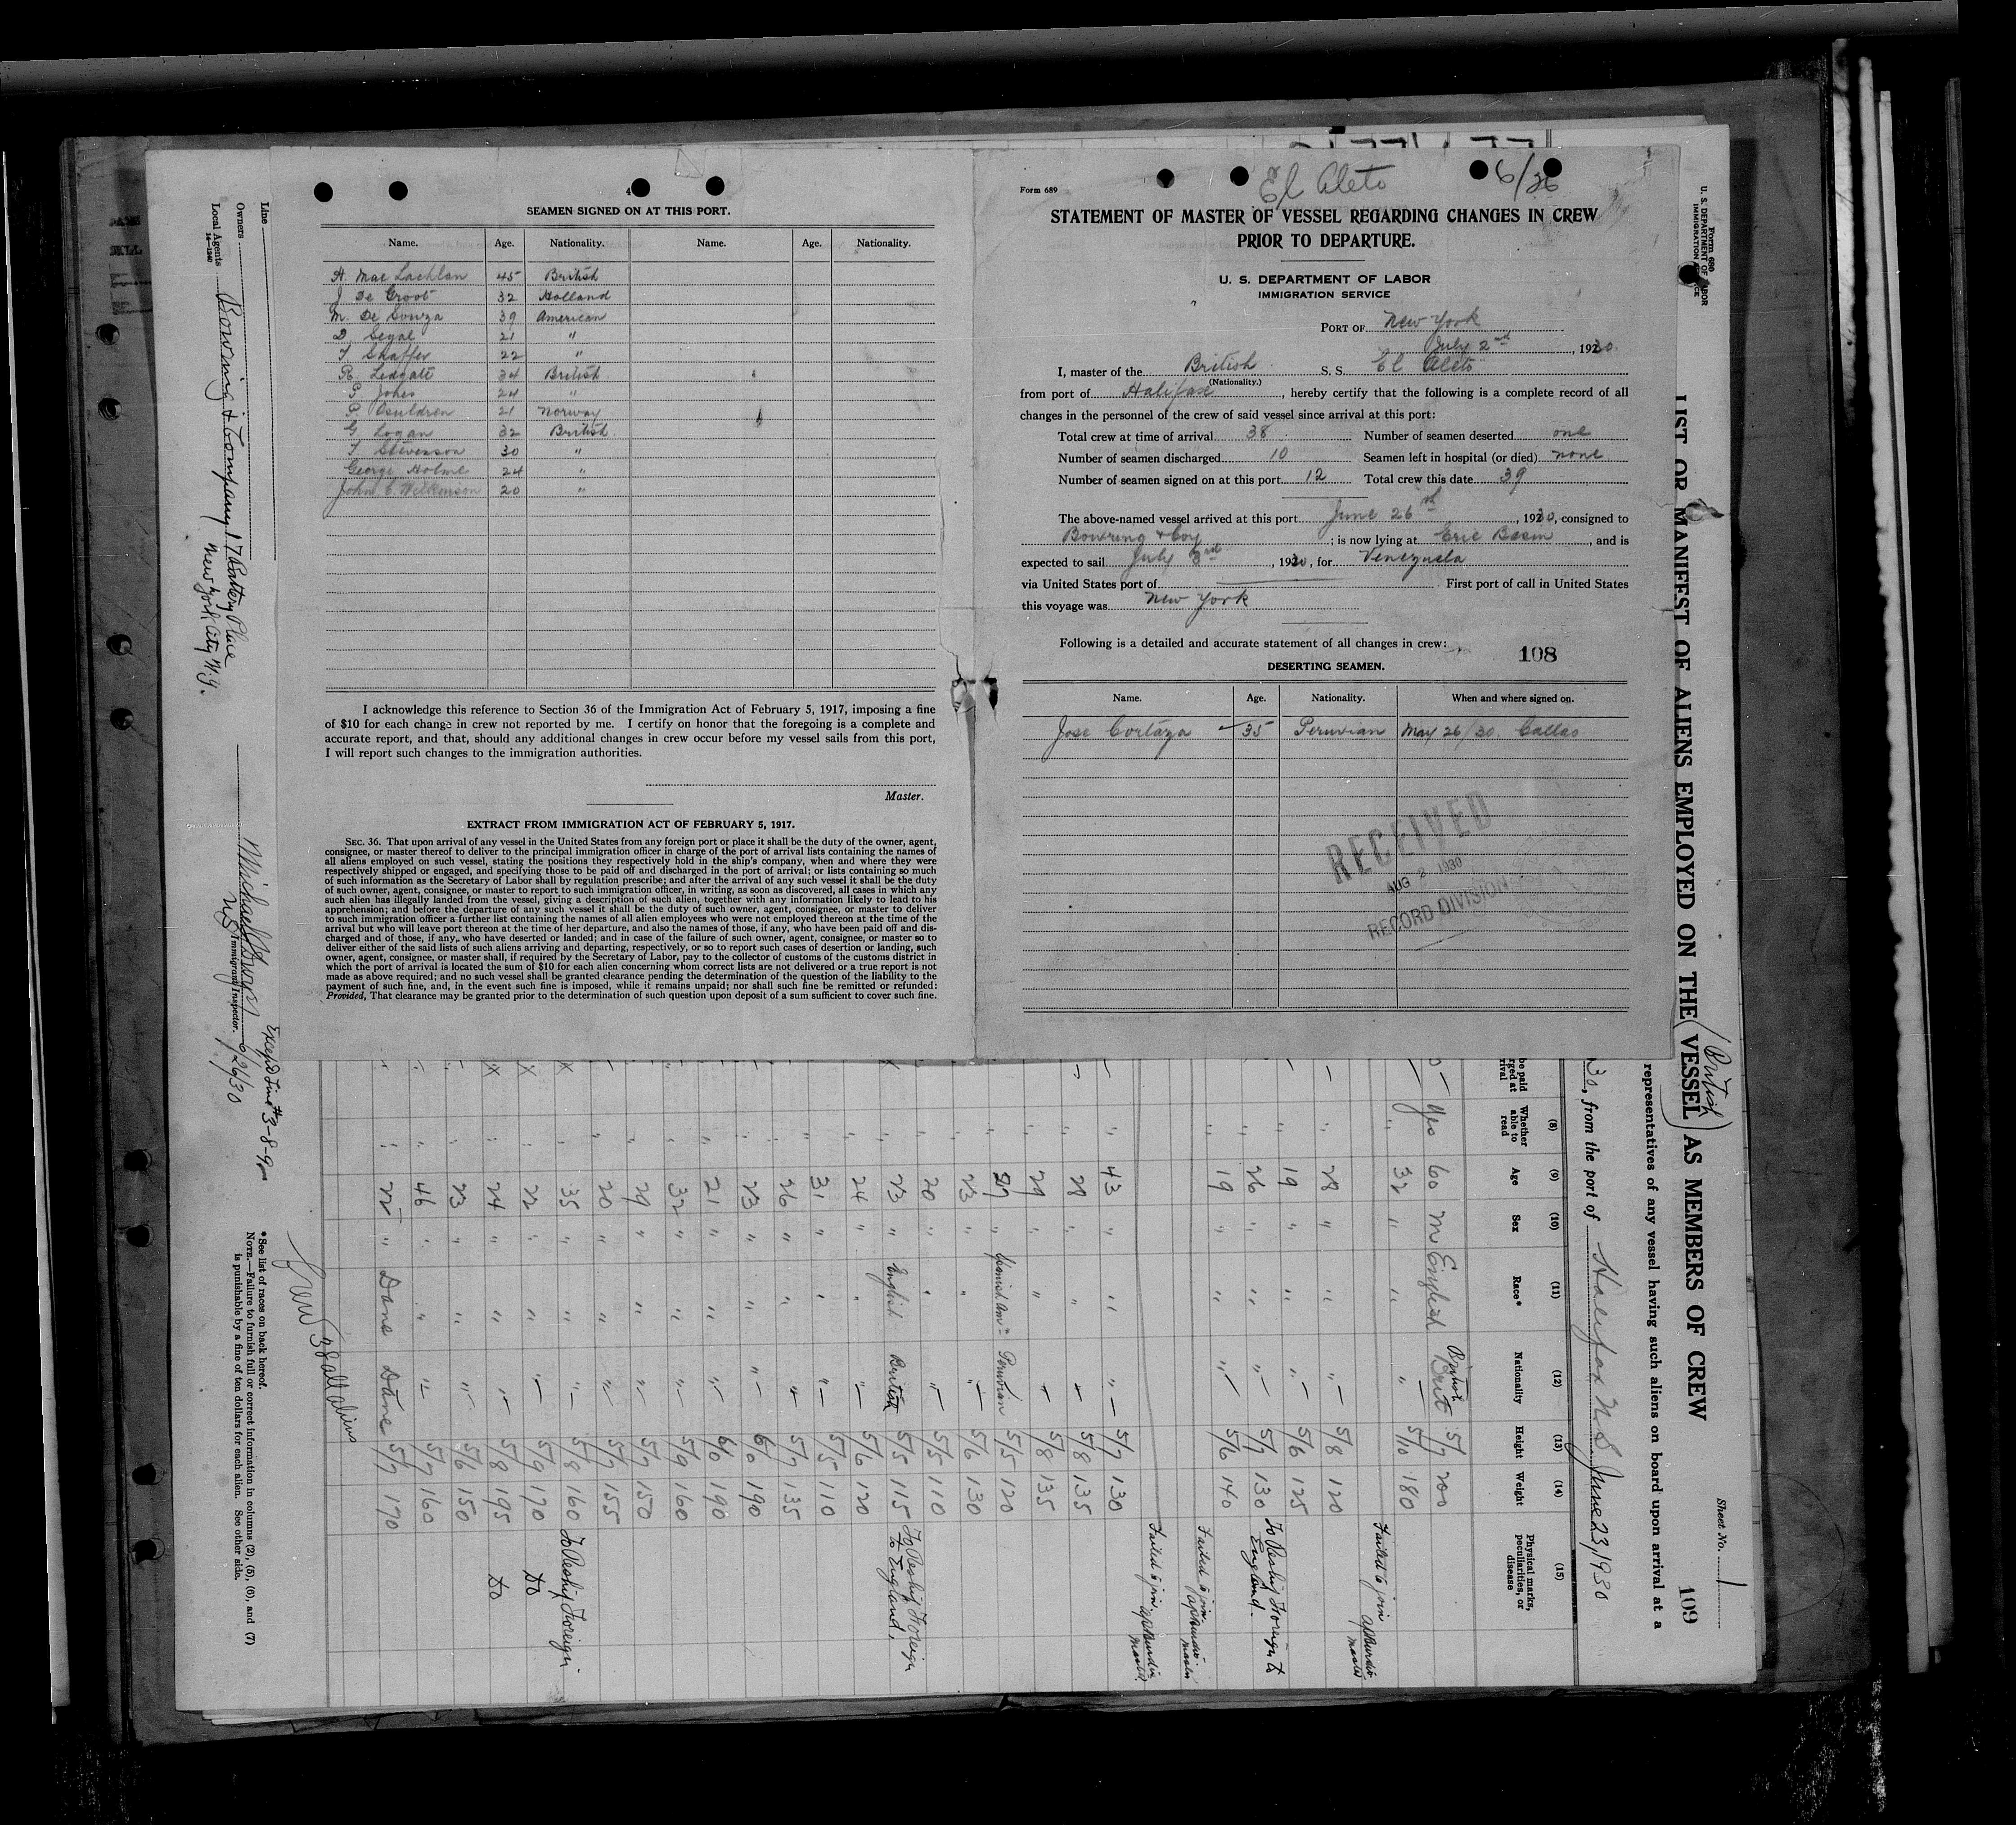 4
SEAMEN SIGNED ON AT THIS PORT.
Name. Age. Nationality. Name. Age. Nationality.
A. Mac Lachlan 45 British
J De Groot 32 Holland
M. De Souza 39 American
D Segal 21 "
F Shaffer 22 "
R. Ledgate 34 British
G Jones 24 "
P 21 Norway
G Logan 32 British
F Stevenson 30 "
George Holme 24 "
John E Wilkinson 20 "
I acknowledge this reference to Section 36 of the Immigration Act of February 5, 1917, imposing a fine
of $10 for each change in crew not reported by me. I certify on honor that the foregoing is a complete and
accurate report, and that, should any additional changes in crew occur before my vessel sails from this port,
I will report such changes to the immigration authorities.
Master.
EXTRACT FROM IMMIGRATION ACT OF FEBRUARY 5, 1917.
SEC. 36. That upon arrival of any vessel in the United States from any foreign port or place it shall be the duty of the owner, agent,
consignee, or master thereof to deliver to the principal immigration officer in charge of the port of arrival lists containing the names of
all aliens employed on such vessel, stating the positions they respectively hold in the ship's company, when and where they were
respectively shipped or engaged, and specifying those to be paid off and discharged in the port of arrival; or lists containing so much
of such information as the Secretary of Labor shall by regulation prescribe; and after the arrival of any such vessel it shall be the duty
of such owner, agent, consignee, or master to report to such immigration officer, in writing, as soon as discovered, all cases in which any
such alien has illegally landed from the vessel, giving a description of such alien, together with any information likely to lead to his
apprehension; and before the departure of any such vessel it shall be the duty of such owner, agent, consignee, or master to deliver
to such immigration officer a further list containing the names of all alien employees who were not employed thereon at the time of the
arrival but who will leave port thereon at the time of her departure, and also the names of those, if any, who have been paid off and dis-
charged and of those, if any, who have deserted or landed; and in case of the failure of such owner, agent, consignee, or master so to
deliver either of the said lists of such aliens arriving and departing, respectively, or so to report such cases of desertion or landing, such
owner, agent, consignee, or master shall, if required by the Secretary of Labor, pay to the collector of customs of the customs district in
which the port of arrival is located the sum of $10 for each alien concerning whom correct lists are not delivered or a true report is not
made as above required; and no such vessel shall be granted clearance pending the determination of the question of the liability to the
payment of such fine, and, in the event such fine is imposed, while it remains unpaid; nor shall such fine be remitted or refunded:
Provided, That clearance may be granted prior to the determination of such question upon deposit of a sum sufficient to cover such fine.
Form 689
El Aleto 6/26
STATEMENT OF MASTER OF VESSEL REGARDING CHANGES IN CREW
PRIOR TO DEPARTURE.
U. S. DEPARTMENT OF LABOR
IMMIGRATION SERVICE
PORT OF New York
July 2nd, 1930.
I, master of the British S. S. El Aleto
(Nationality.)
from port of Halifax, hereby certify that the following is a complete record of all
changes in the personnel of the crew of said vessel since arrival at this port:
Total crew at time of arrival 38 Number of seamen deserted one
Number of seamen discharged 10 Seamen left in hospital (or died) none
Number of seamen signed on at this port 12 Total crew this date 39
The above-named vessel arrived at this port June 26th, 1930, consigned to
Bowring & Coy; is now lying at Erie Basin, and is
expected to sail July 3rd, 1930, for Venezuela
via United States port of First port of call in United States
this voyage was New York
Following is a detailed and accurate statement of all changes in crew:
108
DESERTING SEAMEN.
Name. Age. Nationality. When and where signed on.
Jose Cortaza 35 Peruvian May 26/30. Callao
RECEIVED
AUG 2 1930
RECORD DIVISION
Form 680
U. S. DEPARTMENT OF LABOR
IMMIGRATION SERVICE
Sheet No. 1
109
LIST OR MANIFEST OF ALIENS EMPLOYED ON THE VESSEL AS MEMBERS OF CREW
(British)
representatives of any vessel having such aliens on board upon arrival at a
30, from the port of Halifax N S June 23, 1930
(8) (9) (10) (11) (12) (13) (14) (15)
Whether able to read Age Sex Race* Nationality Height Weight Physical marks, peculiarities, or disease
Yes 60 M English British 5/7 200
" 32 " " " 5/10 180
Failed to join
" 28 " " " 5/8 120
" 19 " " " 5/6 125
" 26 " " " 5/7 130 To Reship Foreign to England.
" 19 " " " 5/6 140
Failed to join
Failed to join
" 43 " " " 5/7 130
" 28 " " " 5/8 135
" 29 " " " 5/8 135
" 27 " Spanish Am Peruvian 5/5 120
" 23 " " " 5/6 130
" 20 " " " 5/5 110
" 23 " English British 5/5 115 To Reship Foreign to England,
" 24 " " " 5/6 120
" 31 " " " 5/5 110
" 26 " " " 5/7 135
" 23 " " " 6/0 190
" 21 " " " 6/0 190
" 32 " " " 5/9 160
" 29 " " " 5/7 150
" 20 " " " 5/7 155
" 35 " " " 5/8 160 To Reship Foreign
" 22 " " " 5/9 170 Do
" 24 " " " 5/8 195 Do
" 23 " " " 5/6 150
" 46 " " " 5/7 160
" 22 " Dane Dane 5/7 170
Crew 38 all aliens
*See list of races on back hereof.
NOTE.—Failure to furnish full or correct information in columns (2), (5), (6), and (7)
is punishable by a fine of ten dollars for each alien. See other side.
Line
Owners
Local Agents Bowring & Company 17 Battery Place
New York City N.Y.
14—1240
Except Line # 3-8-9
6/26/30
Immigrant Inspector.